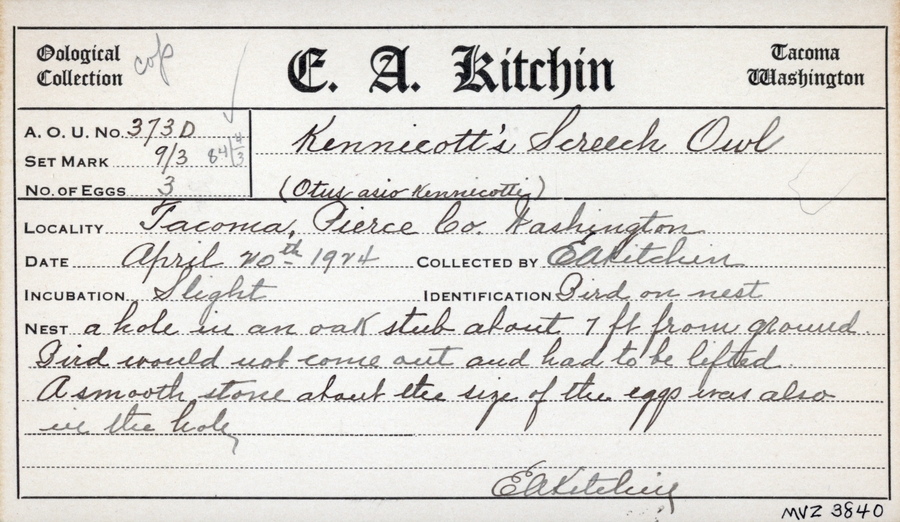 Oological Collection cop E. A. Kitchin Tacoma Washington
A. O. U. No. 373D Kennicott's Screech Owl
SET MARK 9/3 84 4/3
NO. OF EGGS 3 (Otus asio Kennicotti)
LOCALITY Tacoma, Pierce Co. Washington
DATE April 20th 1924 COLLECTED BY EAKitchin
INCUBATION Slight IDENTIFICATION Bird on nest
NEST a hole in an oak stub about 7 ft from ground
Bird would not come out and had to be lifted.
A smooth stone about the size of the eggs was also
in the hole
EAKitchin
MVZ 3840